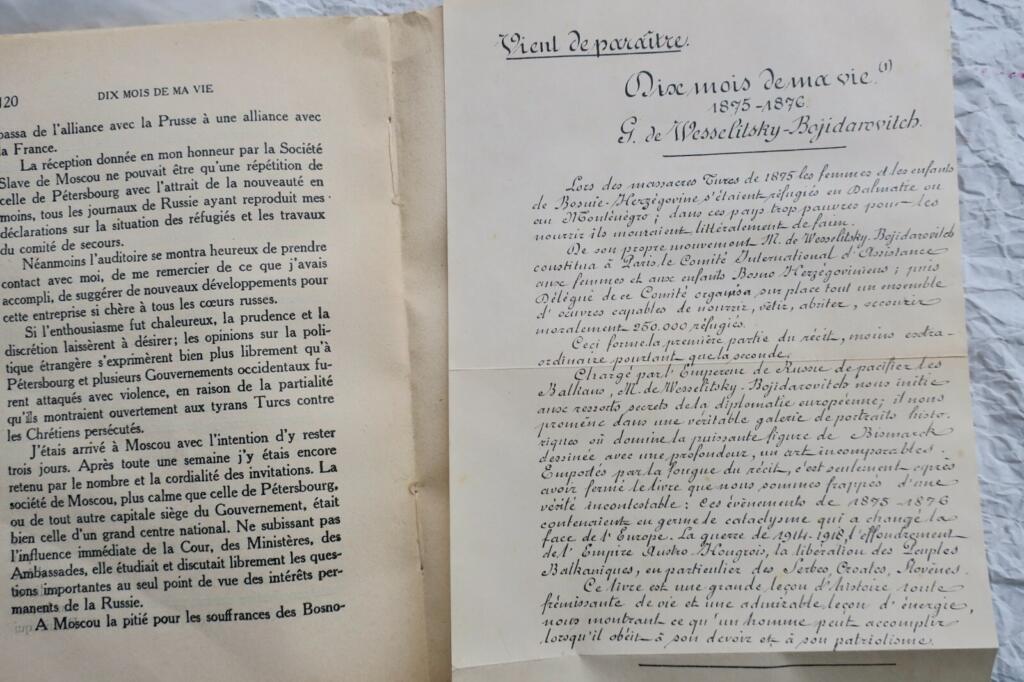 120
DIX MOIS DE MA VIE
passa de l'alliance avec la Prusse à une alliance avec
la France.
La réception donnée en mon honneur par la Société
Slave de Moscou ne pouvait être qu'une répétition de
celle de Pétersbourg avec l'attrait de la nouveauté en
moins, tous les journaux de Russie ayant reproduit mes
déclarations sur la situation des réfugiés et les travaux
du comité de secours.
Néanmoins l'auditoire se montra heureux de prendre
contact avec moi, de me remercier de ce que j'avais
accompli, de suggérer de nouveaux développements pour
cette entreprise si chère à tous les cœurs russes.
Si l'enthousiasme fut chaleureux, la prudence et la
discrétion laissèrent à désirer; les opinions sur la poli-
tique étrangère s'exprimèrent bien plus librement qu'à
Pétersbourg et plusieurs Gouvernements occidentaux fu-
rent attaqués avec violence, en raison de la partialité
qu'ils montraient ouvertement aux tyrans Turcs contre
les Chrétiens persécutés.
J'étais arrivé à Moscou avec l'intention d'y rester
trois jours. Après toute une semaine j'y étais encore
retenu par le nombre et la cordialité des invitations. La
société de Moscou, plus calme que celle de Pétersbourg,
ou de tout autre capitale siège du Gouvernement, était
bien celle d'un grand centre national. Ne subissant pas
l'influence immédiate de la Cour, des Ministères, des
Ambassades, elle étudiait et discutait librement les ques-
tions importantes au seul point de vue des intérêts per-
manents de la Russie.
A Moscou la pitié pour les souffrances des Bosno-
Vient de paraître.
Dix mois de ma vie (1)
1875-1876
G. de Wesselitsky-Bojidarovitch.
Lors des massacres Turcs de 1875 les femmes et les enfants
de Bosnie-Herzégovine s'étaient réfugiés en Dalmatie ou
au Monténégro; dans ces pays trop pauvres pour les
nourrir ils mouraient littéralement de faim.
De son propre mouvement M. de Wesselitsky-Bojidarovitch
constitua à Paris le Comité International d'Assistance
aux femmes et aux enfants Bosno Herzégoviniens; puis
Délégué de ce Comité organisa sur place tout un ensemble
d'œuvres capables de nourrir, vêtir, abriter, secourir
moralement 250.000 réfugiés.
Ceci forme la première partie du récit, moins extra-
ordinaire pourtant que la seconde.
Chargé par l'Empereur de Russie de pacifier les
Balkans, M. de Wesselitsky-Bojidarovitch nous initie
aux ressorts secrets de la diplomatie européenne; il nous
promène dans une véritable galerie de portraits histo-
riques où domine la puissante figure de Bismarck
dessinée avec une profondeur, un art incomparables.
Emportés par la fougue du récit, c'est seulement après
avoir fermé le livre que nous sommes frappés d'une
vérité incontestable: Ces évènements de 1875-1876
contenaient en germe le cataclysme qui a changé la
face de l'Europe. La guerre de 1914-1918, l'effondrement
de l'Empire Austro-Hongrois, la libération des Peuples
Balkaniques, en particulier des Serbes, Croates, Slovènes.
Ce livre est une grande leçon d'histoire toute
frémissante de vie et une admirable leçon d'énergie,
nous montrant ce qu'un homme peut accomplir
lorsqu'il obéit à son devoir et à son patriotisme.